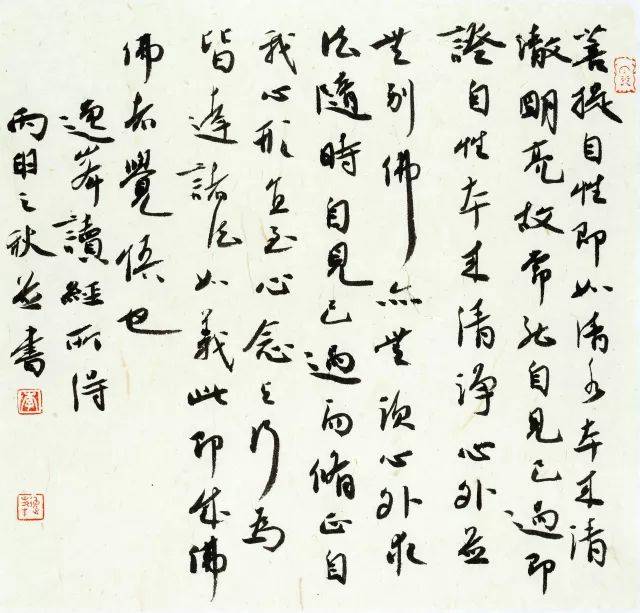 菩提自性即如清水本來清
澈明亮故常能自見己過即
證自性本來清淨心外並
無別佛亦無須心外求
法隨時自見己過而脩正自
我心形直至心念與行為
皆達諸法如義此即成佛
佛者覺悟也
逸峯讀經所得
丙申之秋並書
李